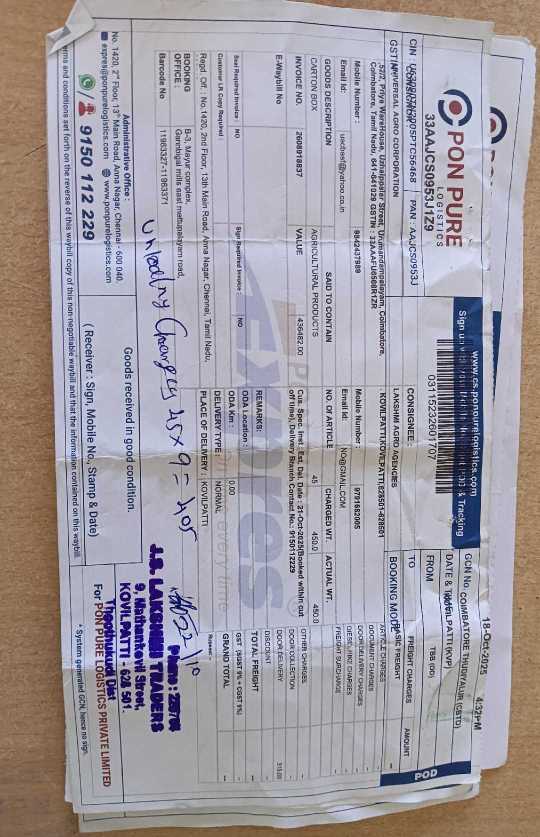 PON PURE
LOGISTICS
33AAJCS0953J1Z9
PAN : AAJCS0953J
www.cs.ponpurelogistics.com
& Tracking
03115232601707
18-Oct-2025 4:32PM
GCN No.
COIMBATORE THUDIYALUR (CBTD)
DATE & TIME
KOVILPATTI (KVP)
FROM
TBB (DD)
TO
BOOKING MODE
POD
UNIVERSAL AGRO CORPORATION
Coimbatore, Tamil Nadu, 641-641029 GSTIN : 33AAAFU0508R1ZR
Mobile Number : 9842437989
Email Id:
CONSIGNEE :
LAKSHMI AGRO AGENCIES
KOVILPATTI,KOVILPATTI,628501-628501
Mobile Number : 9791682005
Email Id: NO@GMAIL.COM
GOODS DESCRIPTION
SAID TO CONTAIN
NO. OF ARTICLE
CHARGED WT.
ACTUAL WT.
CARTON BOX
AGRICULTURAL PRODUCTS
45
450.0
450.0
INVOICE NO. 2608918837
VALUE 436482.00
E-Waybill No
Cus. Spec. Inst : Est. Del. Date : 21-Oct-2025(Booked within cut
off time), Delivery Branch Contact No.: 9150112229
REMARKS:
Seal Required Invoice : NO
Sign Required Invoice : NO
Customer LR Copy Required :
ODA Location :
ODA Km : 0.00
Regd. Off. : No. 1420, 2nd Floor, 13th Main Road, Anna Nagar, Chennai, Tamil Nadu,
DELIVERY TYPE : NORMAL
BOOKING
OFFICE :
B-3, Mayur complex,
PLACE OF DELIVERY : KOVILPATTI
Barcode No 11963327-11963371
FREIGHT CHARGES AMOUNT
BASIC FREIGHT
ARTICLE CHARGES
DOCUMENT CHARGES
DOOR DELIVERY CHARGES
FREIGHT SURCHARGE
OTHER CHARGES
DOOR COLLECTION
DOOR DELIVERY 315.00
DISCOUNT
TOTAL FREIGHT
GST (SGST 9% + CGST 9%)
GRAND TOTAL
Unloading Charges 45 x 9 = 405
22/10
J.S. LAKSHMI TRADERS
KOVILPATTI - 628 501.
Thoothukudi Dist
Administrative Office :
No. 1420, 2nd Floor, 13th Main Road, Anna Nagar, Chennai - 600 040.
expres@ponpurelogistics.com www.ponpurelogistics.com
9150 112 229
Goods received in good condition.
( Receiver : Sign, Mobile No., Stamp & Date)
For PON PURE LOGISTICS PRIVATE LIMITED
* System generated GCN, hence no sign.
terms and conditions set forth on the reverse of this waybill copy of this non-negotiable waybill and that the information contained on this waybill.